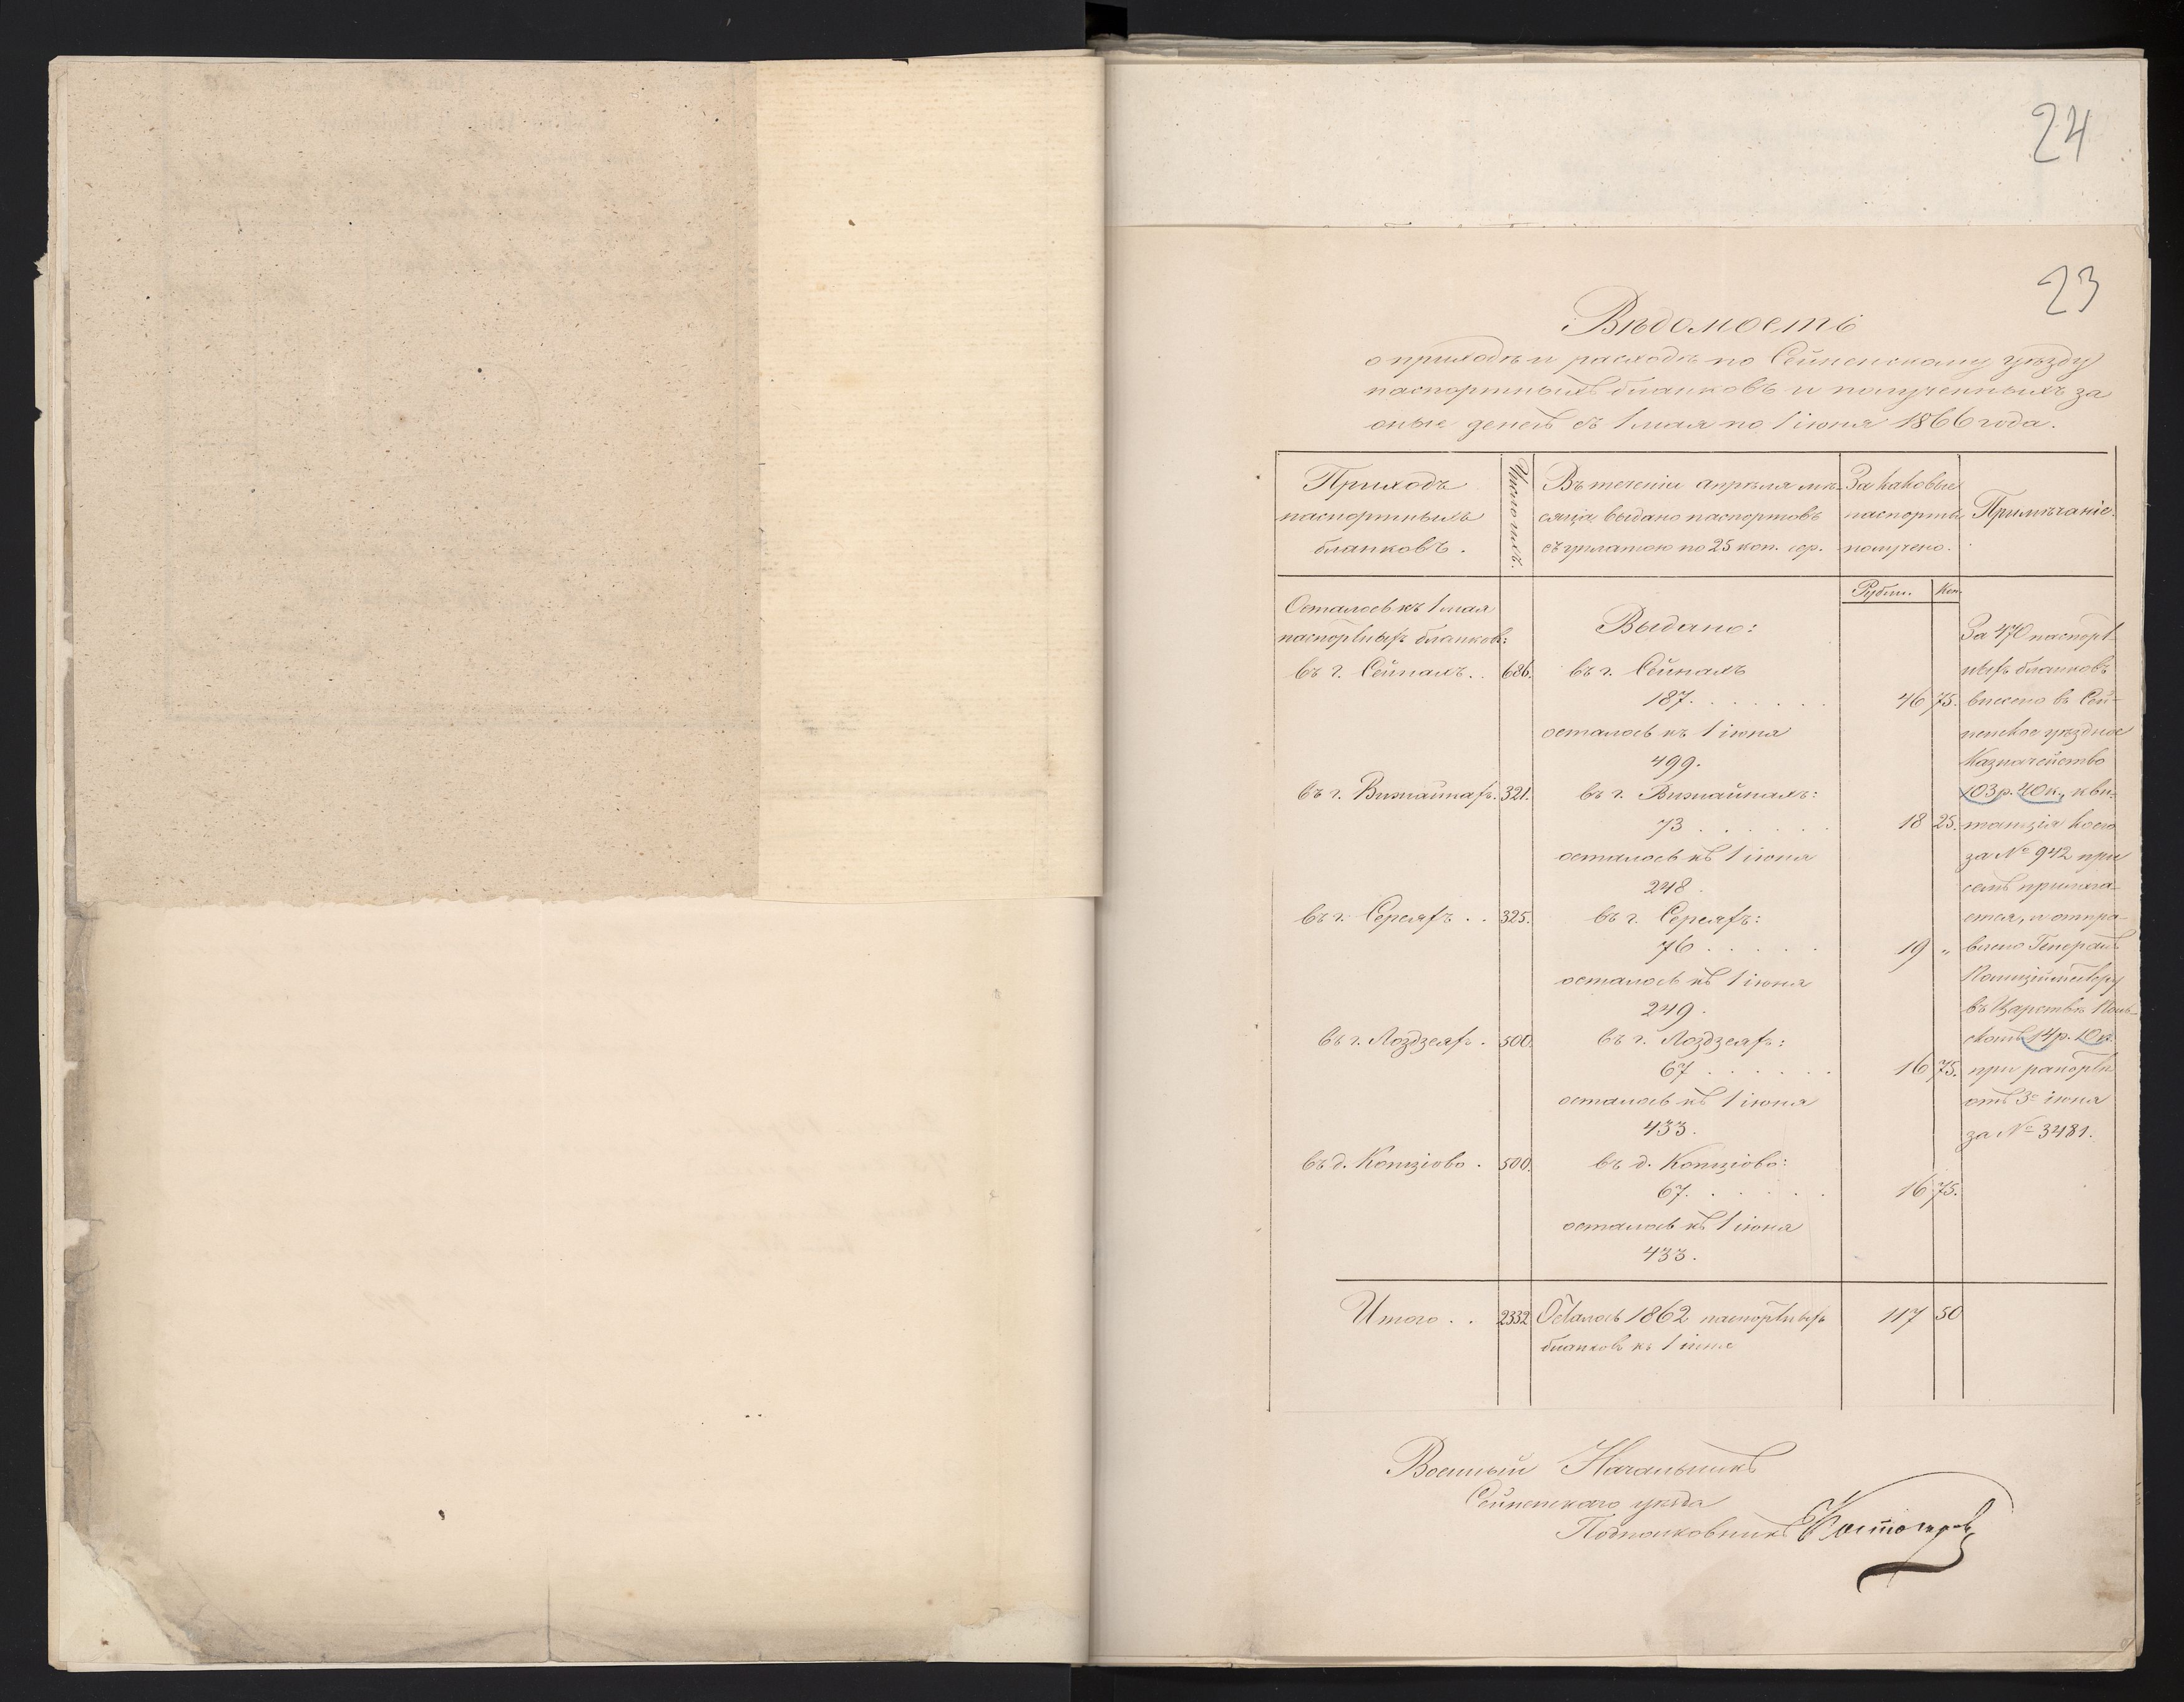 24
23
Вѣдомость
о приходѣ и расходѣ по Сейненскому уѣзду
паспортныхъ бланковъ и полученныхъ за
оные денегъ съ 1 мая по 1 іюня 1866 года.
Приходъ
паспортныхъ
бланковъ.
Число ихъ.
Въ теченіи апрѣля мѣ-
сяца, выдано паспортовъ
съ уплатою по 25 коп. сер.
За каковые
паспорты
получено.
Примѣчаніе.
Рубли. Коп.
Осталось къ 1 мая
паспортныхъ бланковъ:
въ г. Сейнахъ.. 686.
Выдано:
въ г. Сейнахъ
187. . . . . . . 46 75.
осталось къ 1 іюня
499.
въ г. Вижайнахъ. 321.
въ г. Вижайнахъ:
73 . . . . . . 18 25.
осталось къ 1 іюня
248.
въ г. Сереяхъ . . 325.
въ г. Сереяхъ:
76 . . . . . 19 „
осталось къ 1 іюня
249.
въ г. Лоздзеяхъ . 500.
въ г. Лоздзеяхъ:
67 . . . . . . 16 75.
осталось къ 1 іюня
433.
въ д. Копціово . 500.
въ д. Копціово:
67. . . . . . 16 75.
осталось къ 1 іюня
433.
За 470 паспорт-
ныхъ бланковъ
внесено въ Сей-
ненское уѣздное
Казначейство
103 р. 40 к., кви-
танція коего
за № 942 при
семъ прилага-
ется, и отпра-
влено Генералъ
Полиціймейстеру
въ Царствѣ Поль-
скомъ 14 р. 10 к.
при рапортѣ
отъ 3го іюня
за № 3481.
Итого . . 2332 Осталось 1862 паспортныхъ 117 50
бланковъ къ 1 іюня
Военный Начальникъ
Сейненскаго уѣзда
Подполковникъ